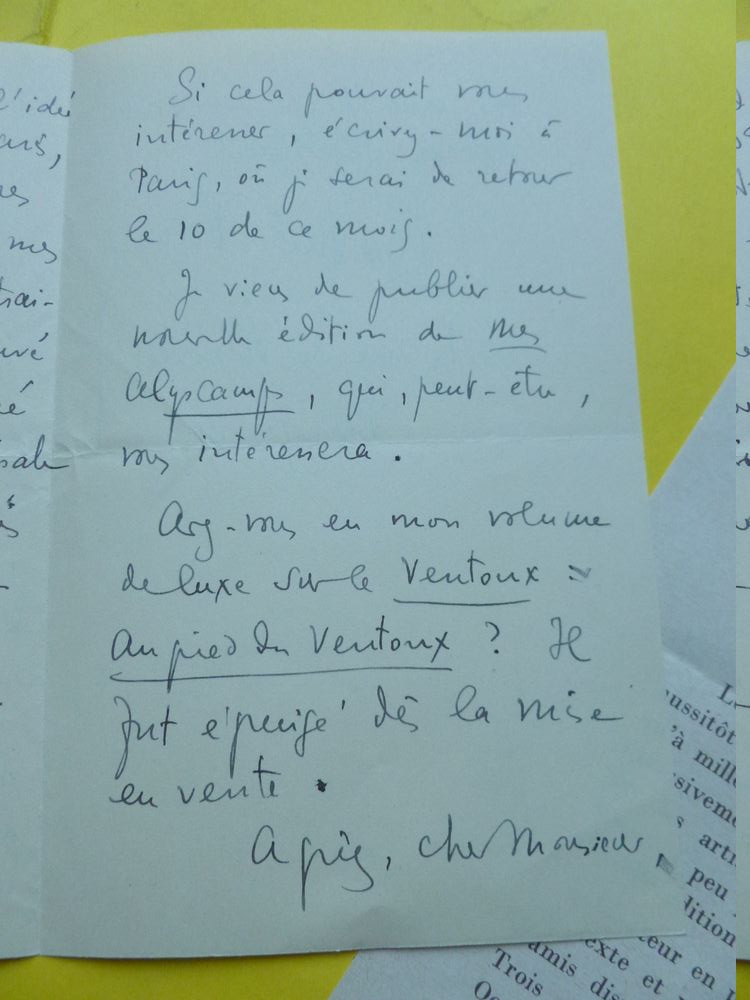 Si cela pouvait vous
intéresser, écrivez-moi à
Paris, où je serai de retour
le 10 de ce mois.
Je viens de publier une
nouvelle édition de mes
Alyscamps, qui, peut-être,
vous intéressera.
Avez-vous eu mon volume
de luxe sur le Ventoux =
Au pied du Ventoux ? Il
fut épuisé dès la mise
en vente.
Agréez, cher Monsieur
l'idée
mes
ussitôt
'à mill
sivem
s arti
peu
dition
teur en
exte et
amis dis
Trois